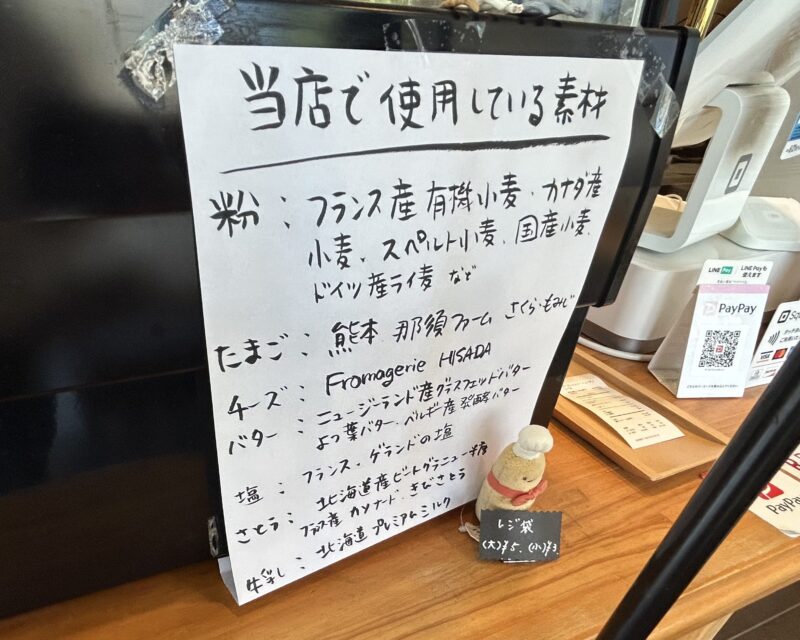 当店で使用している素材
粉：フランス産有機小麦、カナダ産
小麦、スペルト小麦、国産小麦、
ドイツ産ライ麦 など
たまご：熊本 那須ファーム さくら・もみじ
チーズ：Fromagerie HISADA
バター：ニュージーランド産グラスフェッドバター
よつ葉バター、ベルギー産発酵バター
塩：フランス・ゲランドの塩
さとう：北海道産ビートグラニュー糖
フランス産カソナード、きびさとう
牛乳：北海道プレミアムミルク
レジ袋
(大)¥5、(小)¥3
LINE Pay
LINE Payも
使えます
PayPay